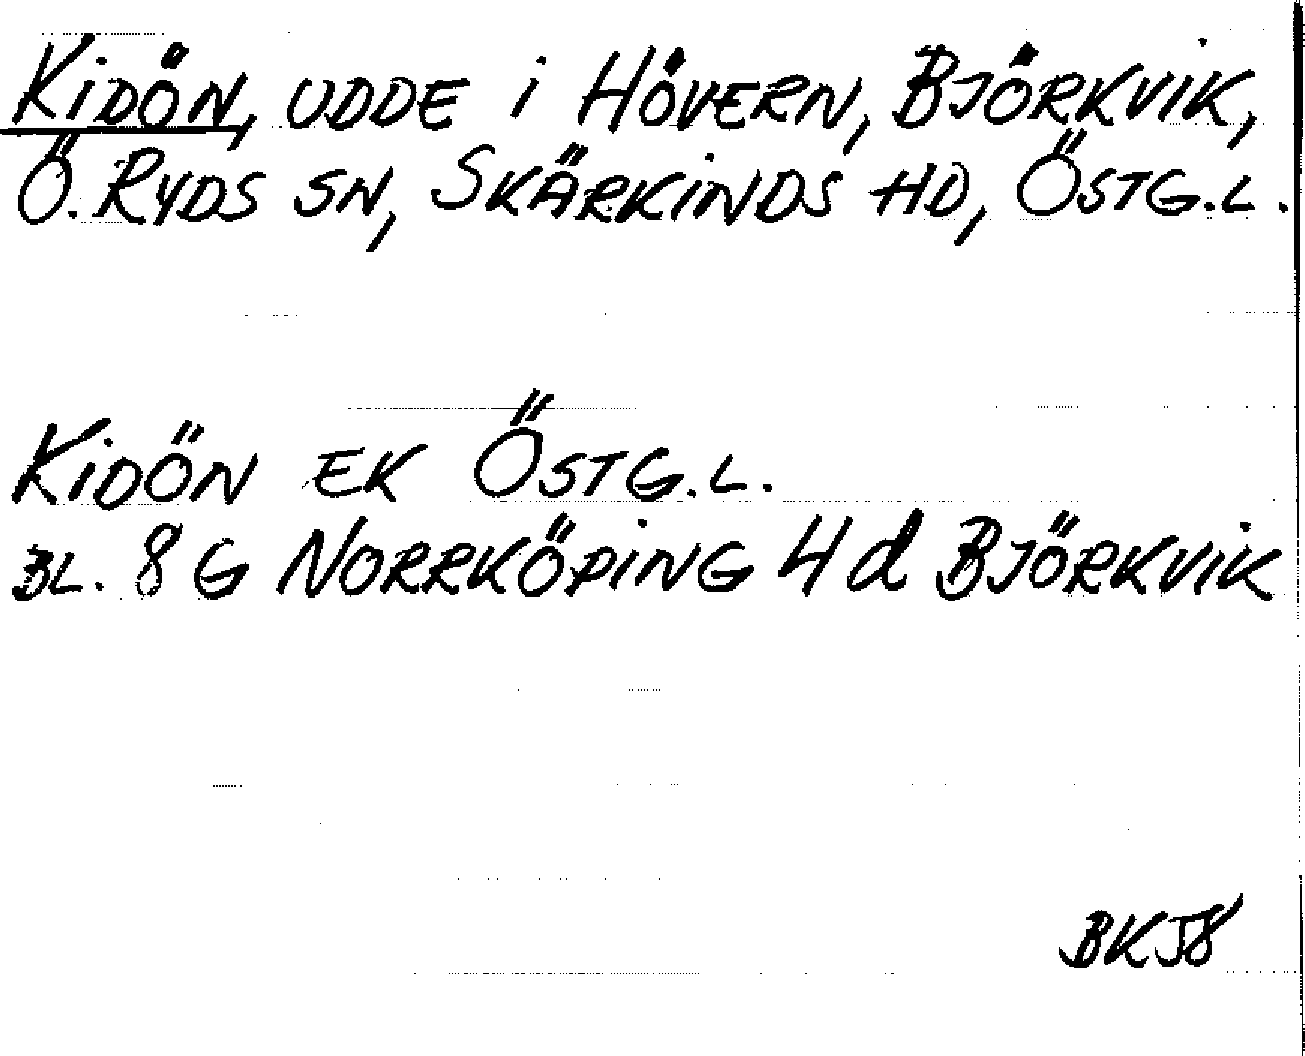 KIDÖN, UDDE I HÖVERN, BJÖRKVIK,
Ö. RYDS SN, SKÄRKINDS HD, ÖSTG.L.
KIDÖN EK ÖSTG.L.
BL. 8 G NORRKÖPING 4 d BJÖRKVIK